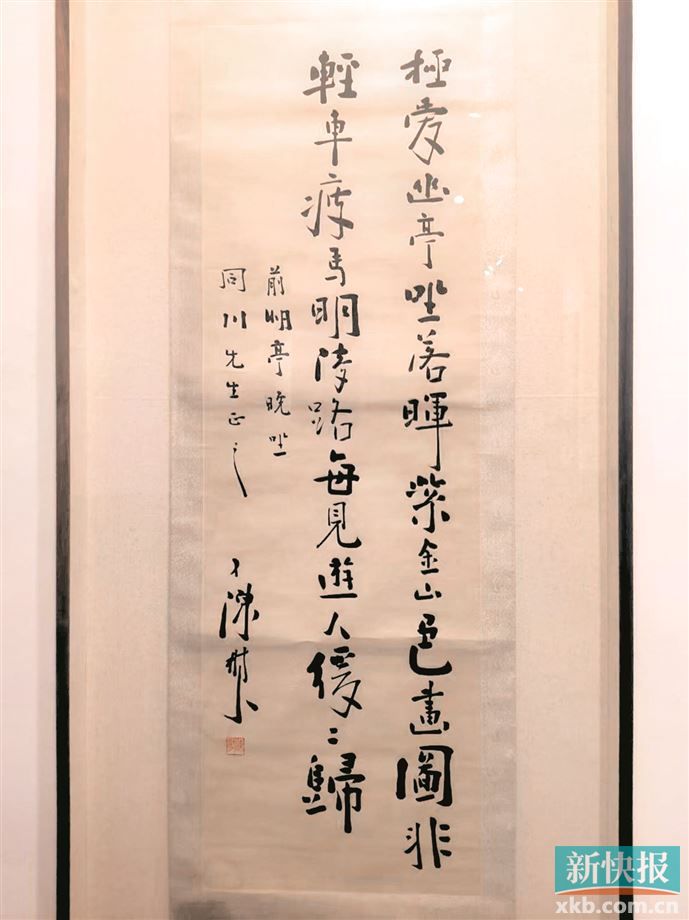 極愛幽亭坐落暉紫金山色畫圖非
輕車疲馬明陵路每見遊人緩〻歸
前明亭晚坐
同川先生正之
陳樹人
新快报
xkb.com.cn